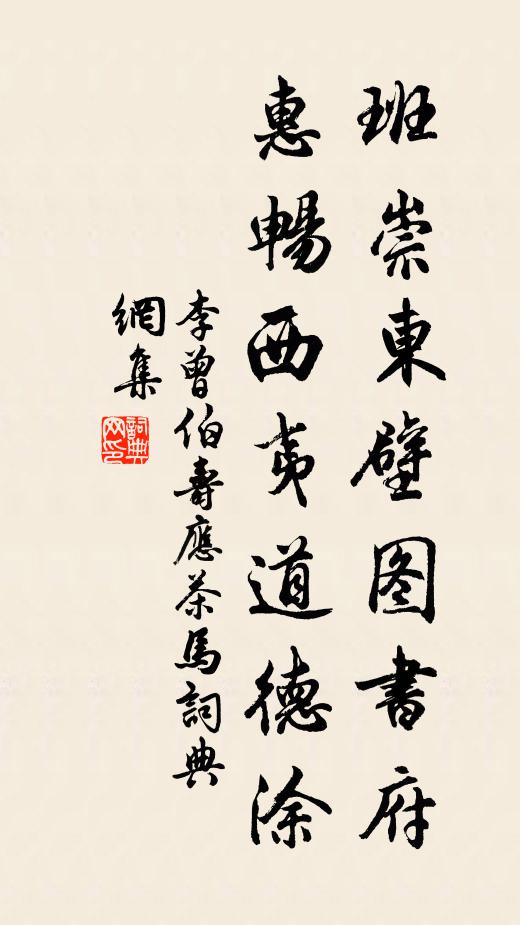 班崇東壁图書府
惠暢西夷道德涂
李曾伯壽應茶馬詞典
網集
詞典網印